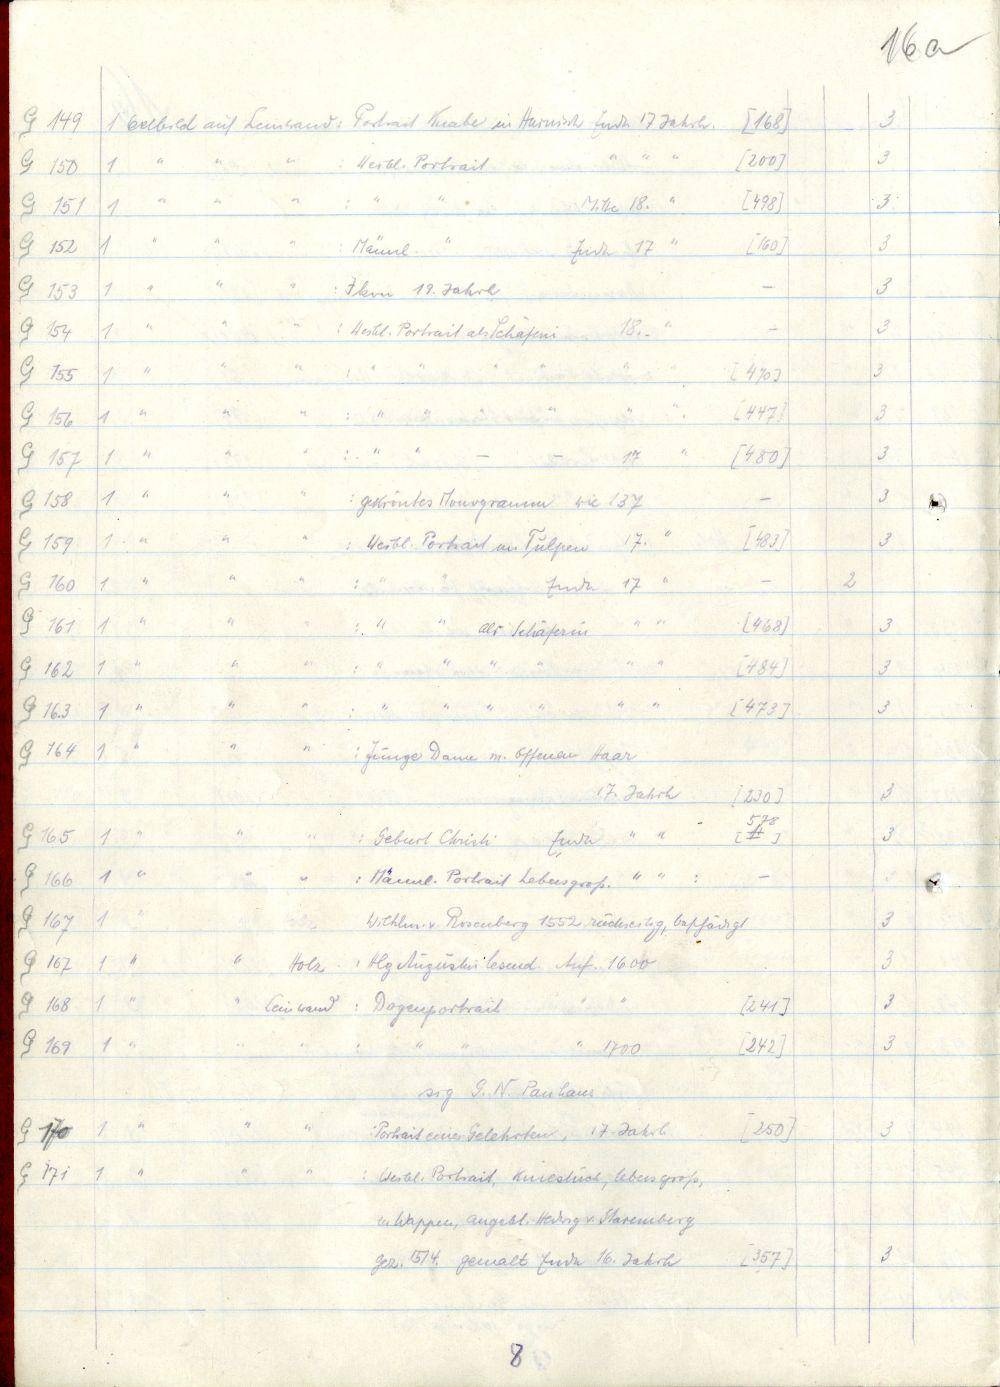 16a
G 149 1 Oelbild auf Leinwand: Portrait Knabe in Harnisch Ende 17 Jahrh. [168] 3
G 150 1 " " " : Weibl. Portrait " " " [200] 3
G 151 1 " " " : " " Mitte 18. " [498] 3
G 152 1 " " " : Männl. " Ende 17 " [160] 3
G 153 1 " " " : Ikon 19. Jahrh – 3
G 154 1 " " " : Weibl. Portrait als Schäferin 18. " – 3
G 155 1 " " " : " " " " " " [470] 3
G 156 1 " " " : " " " " " " [447] 3
G 157 1 " " " : " " – – 17 " [480] 3
G 158 1 " " " : gekröntes Monogramm wie 137 – 3
G 159 1 " " " : Weibl. Portrait m Tulpen 17. " [483] 3
G 160 1 " " " : " " Ende 17 " – 2
G 161 1 " " " : " " als Schäferin " " [468] 3
G 162 1 " " " : " " " " " " [484] 3
G 163 1 " " " : " " " " " " [473] 3
G 164 1 " " " : Junge Dame m. offenen Haar
17. Jahrh [230] 3
G 165 1 " " " : Geburt Christi Ende " " [578] 3
G 166 1 " " " : Männl. Portrait Lebensgroß. " " : –
G 167 1 " Wilhlm. v. Rosenberg 1552 rückseitig, beschädigt 3
G 167 1 " " Holz : Hlg Augustin lesend. Anf. 1600 3
G 168 1 " " Leinwand : Dogenportrait " " [241] 3
G 169 1 " " " : " " " 1700 [242] 3
sig G. N. Panhaus
G 170 1 " " " : Portrait eines Gelehrten, 17. Jahrh [250] 3
G 171 1 " " " : Weibl. Portrait, Kniestück, lebensgroß,
m Wappen, angebl. Hedwig v. Staremberg
gez. 1514. gemalt Ende 16. Jahrh [357] 3
8